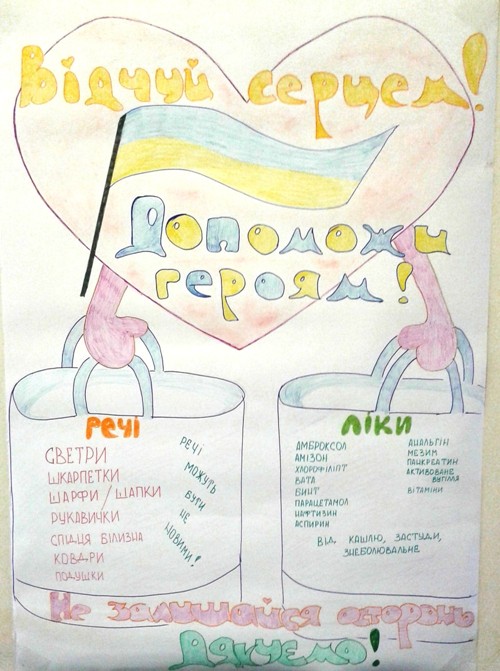 Відчуй серцем!
Допоможи
героям!
РЕЧІ
СВЕТРИ
ШКАРПЕТКИ
ШАРФИ/ШАПКИ
РУКАВИЧКИ
СПІДНЯ БІЛИЗНА
КОВДРИ
ПОДУШКИ
РЕЧІ
МОЖУТЬ
БУТИ
НЕ
НОВИМИ!
ЛІКИ
АМБРОКСОЛ
АМІЗОН
ХЛОРОФІЛІПТ
ВАТА
БИНТ
ПАРАЦЕТАМОЛ
НАФТИЗИН
АСПИРИН
АНАЛЬГІН
МЕЗИМ
ПАНКРЕАТИН
АКТИВОВАНЕ
ВУГІЛЛЯ
ВІТАМІНИ
ВІД КАШЛЮ, ЗАСТУДИ,
ЗНЕБОЛЮВАЛЬНЕ
Не залишайся осторонь
Дякуємо!